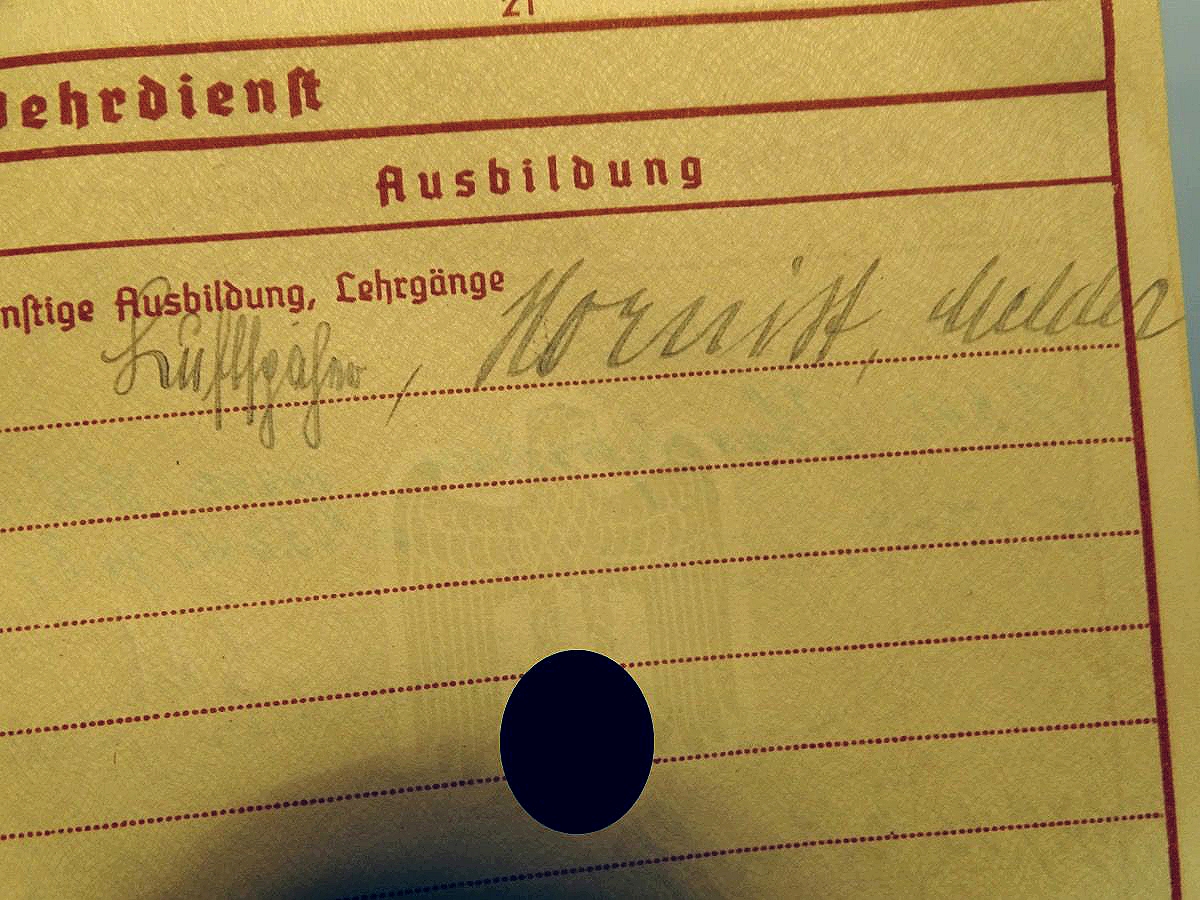 21
Wehrdienst
Ausbildung
nstige Ausbildung, Lehrgänge
, Hornist, Melder